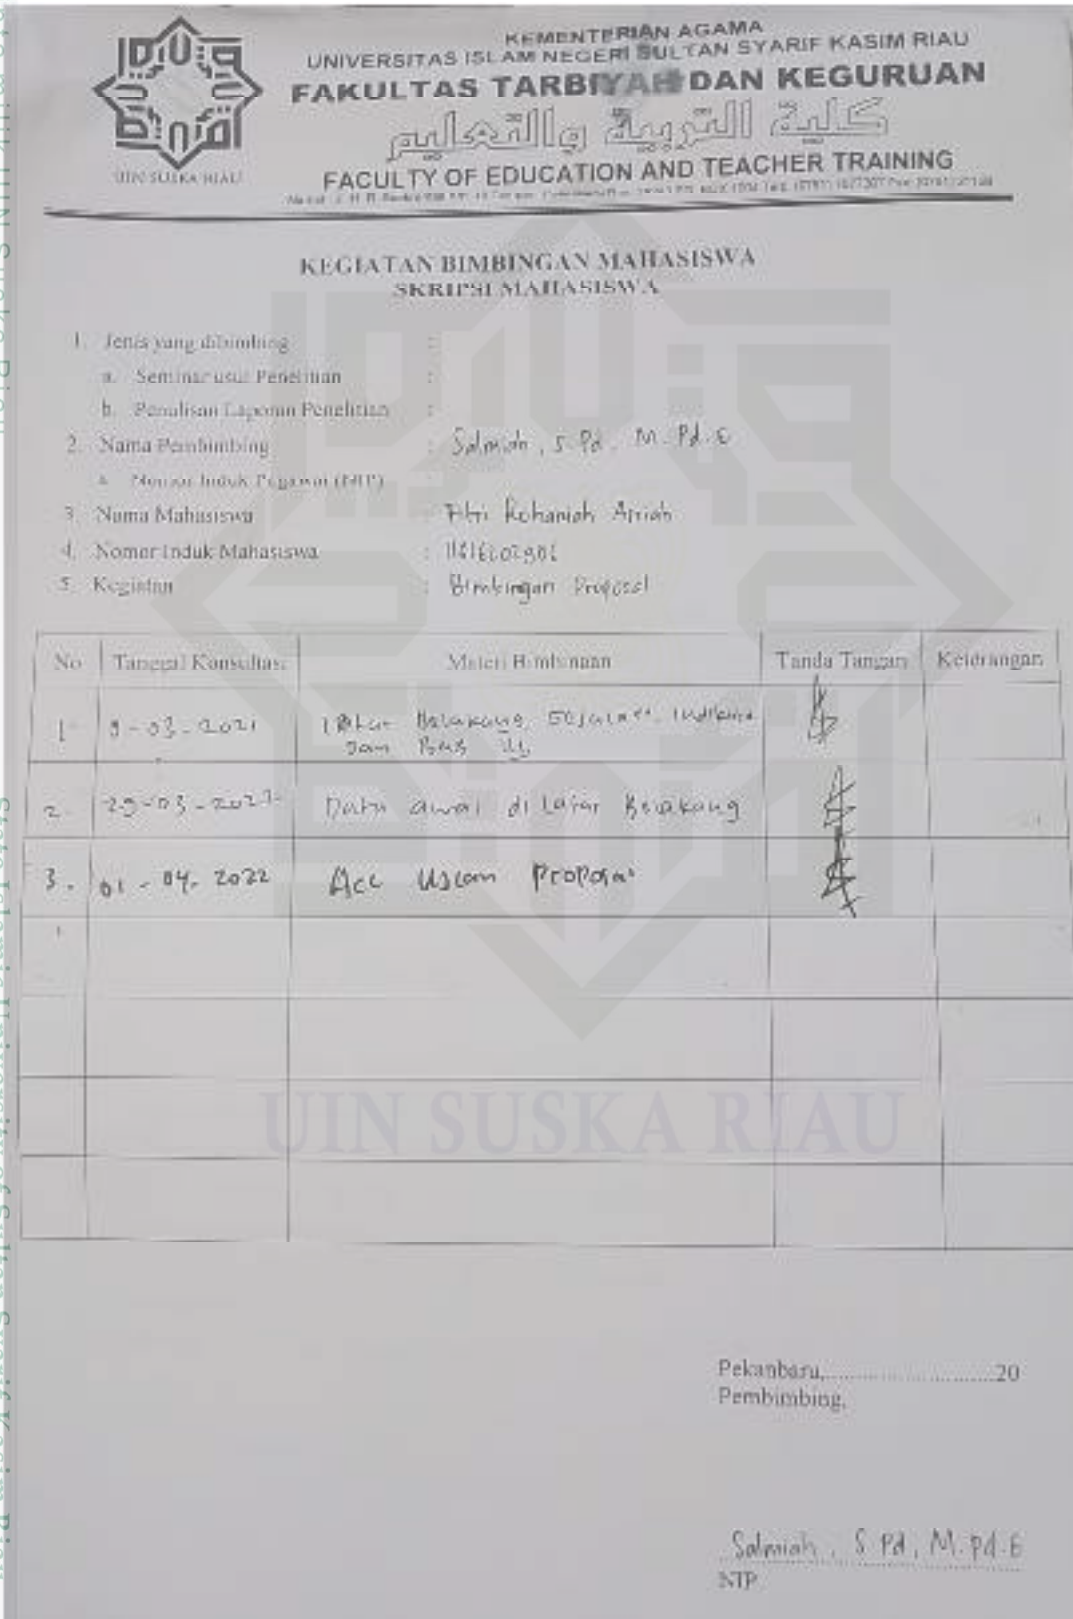 UIN SUSKA RIAU
KEMENTERIAN AGAMA
UNIVERSITAS ISLAM NEGERI SULTAN SYARIF KASIM RIAU
FAKULTAS TARBIYAH DAN KEGURUAN
كلية التربية والتعليم
FACULTY OF EDUCATION AND TEACHER TRAINING
KEGIATAN BIMBINGAN MAHASISWA
SKRIPSI MAHASISWA
1. Jenis yang dibimbing :
a. Seminar usul Penelitian :
b. Penulisan Laporan Penelitian :
2. Nama Pembimbing : Salmiah, S.Pd, M.Pd.E
a. Nomor Induk Pegawai (NIP)
3. Nama Mahasiswa : Fitri Rohaniah
4. Nomor Induk Mahasiswa :
5. Kegiatan : Bimbingan Proposal
No Tanggal Konsultasi Materi Bimbingan Tanda Tangan Keterangan
1 9-03-2021 Belakang
dan
2. 29-03- Data awal di Latar Belakang
3. 01-04-2022 Acc Proposal
UIN SUSKA RIAU
Pekanbaru,............................20
Pembimbing,
Salmiah, S Pd, M.Pd.E
NIP